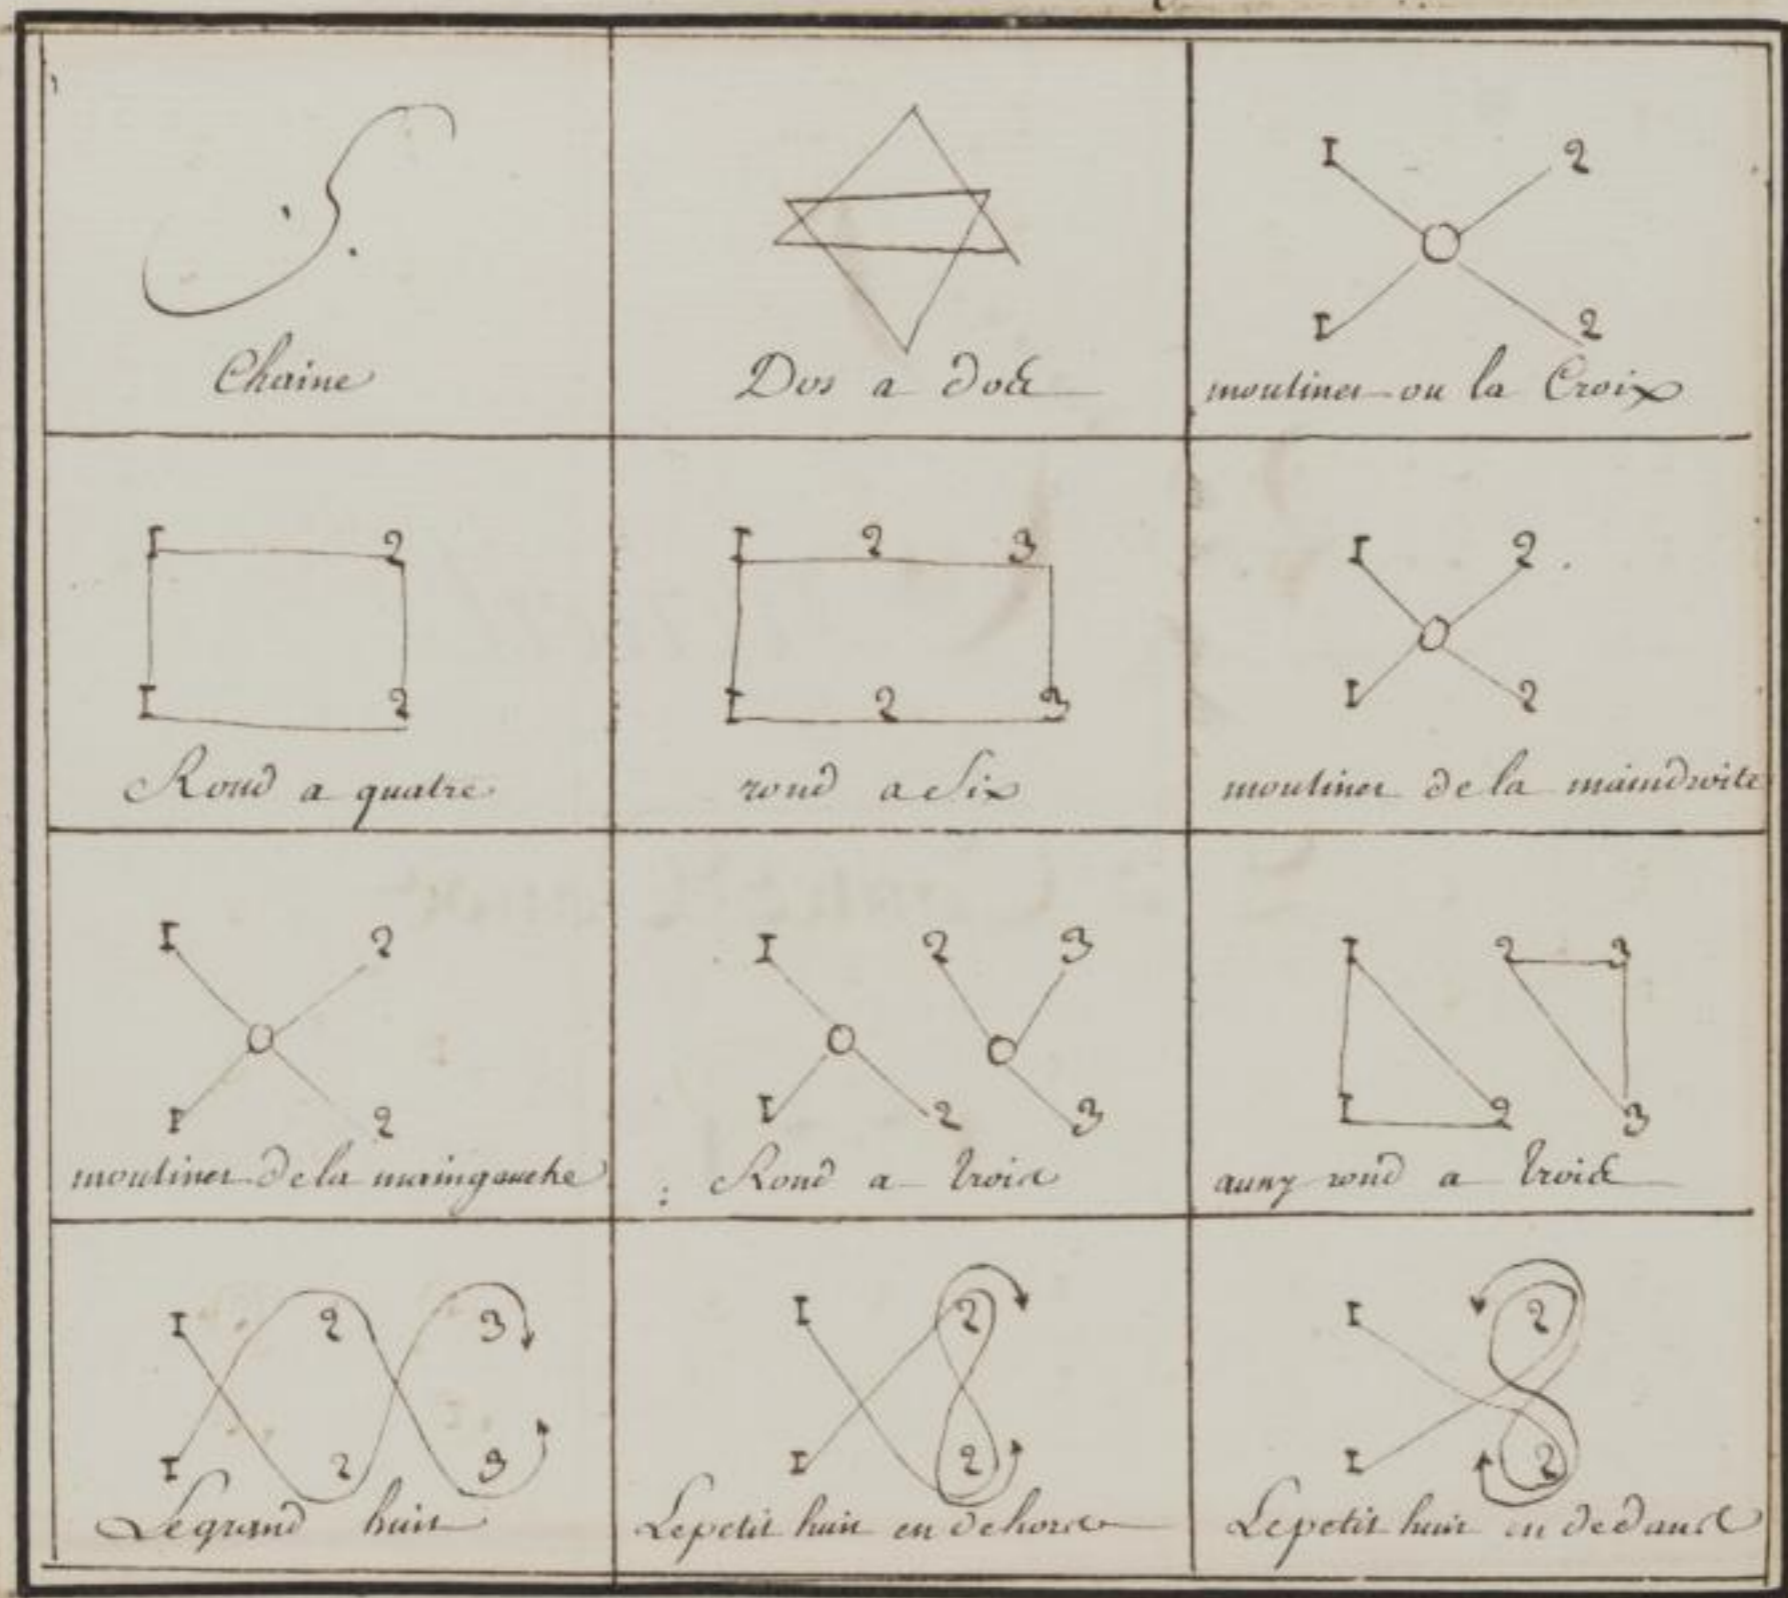 Chaine
Dos a dos
I 2
I 2
moulinet ou la Croix
I 2
I 2
Rond a quatre
I 2 3
I 2 3
rond a Six
I 2
I 2
moulinet de la maindroite
I 2
I 2
moulinet de la maingauche
I 2 3
I 2 3
: Rond a trois
I 2 3
I 2 3
aussy rond a trois
I 2 3
I 2 3
Legrand huit
I 2
I 2
Lepetit huit en dehors
I 2
I 2
Lepetit huit en dedans